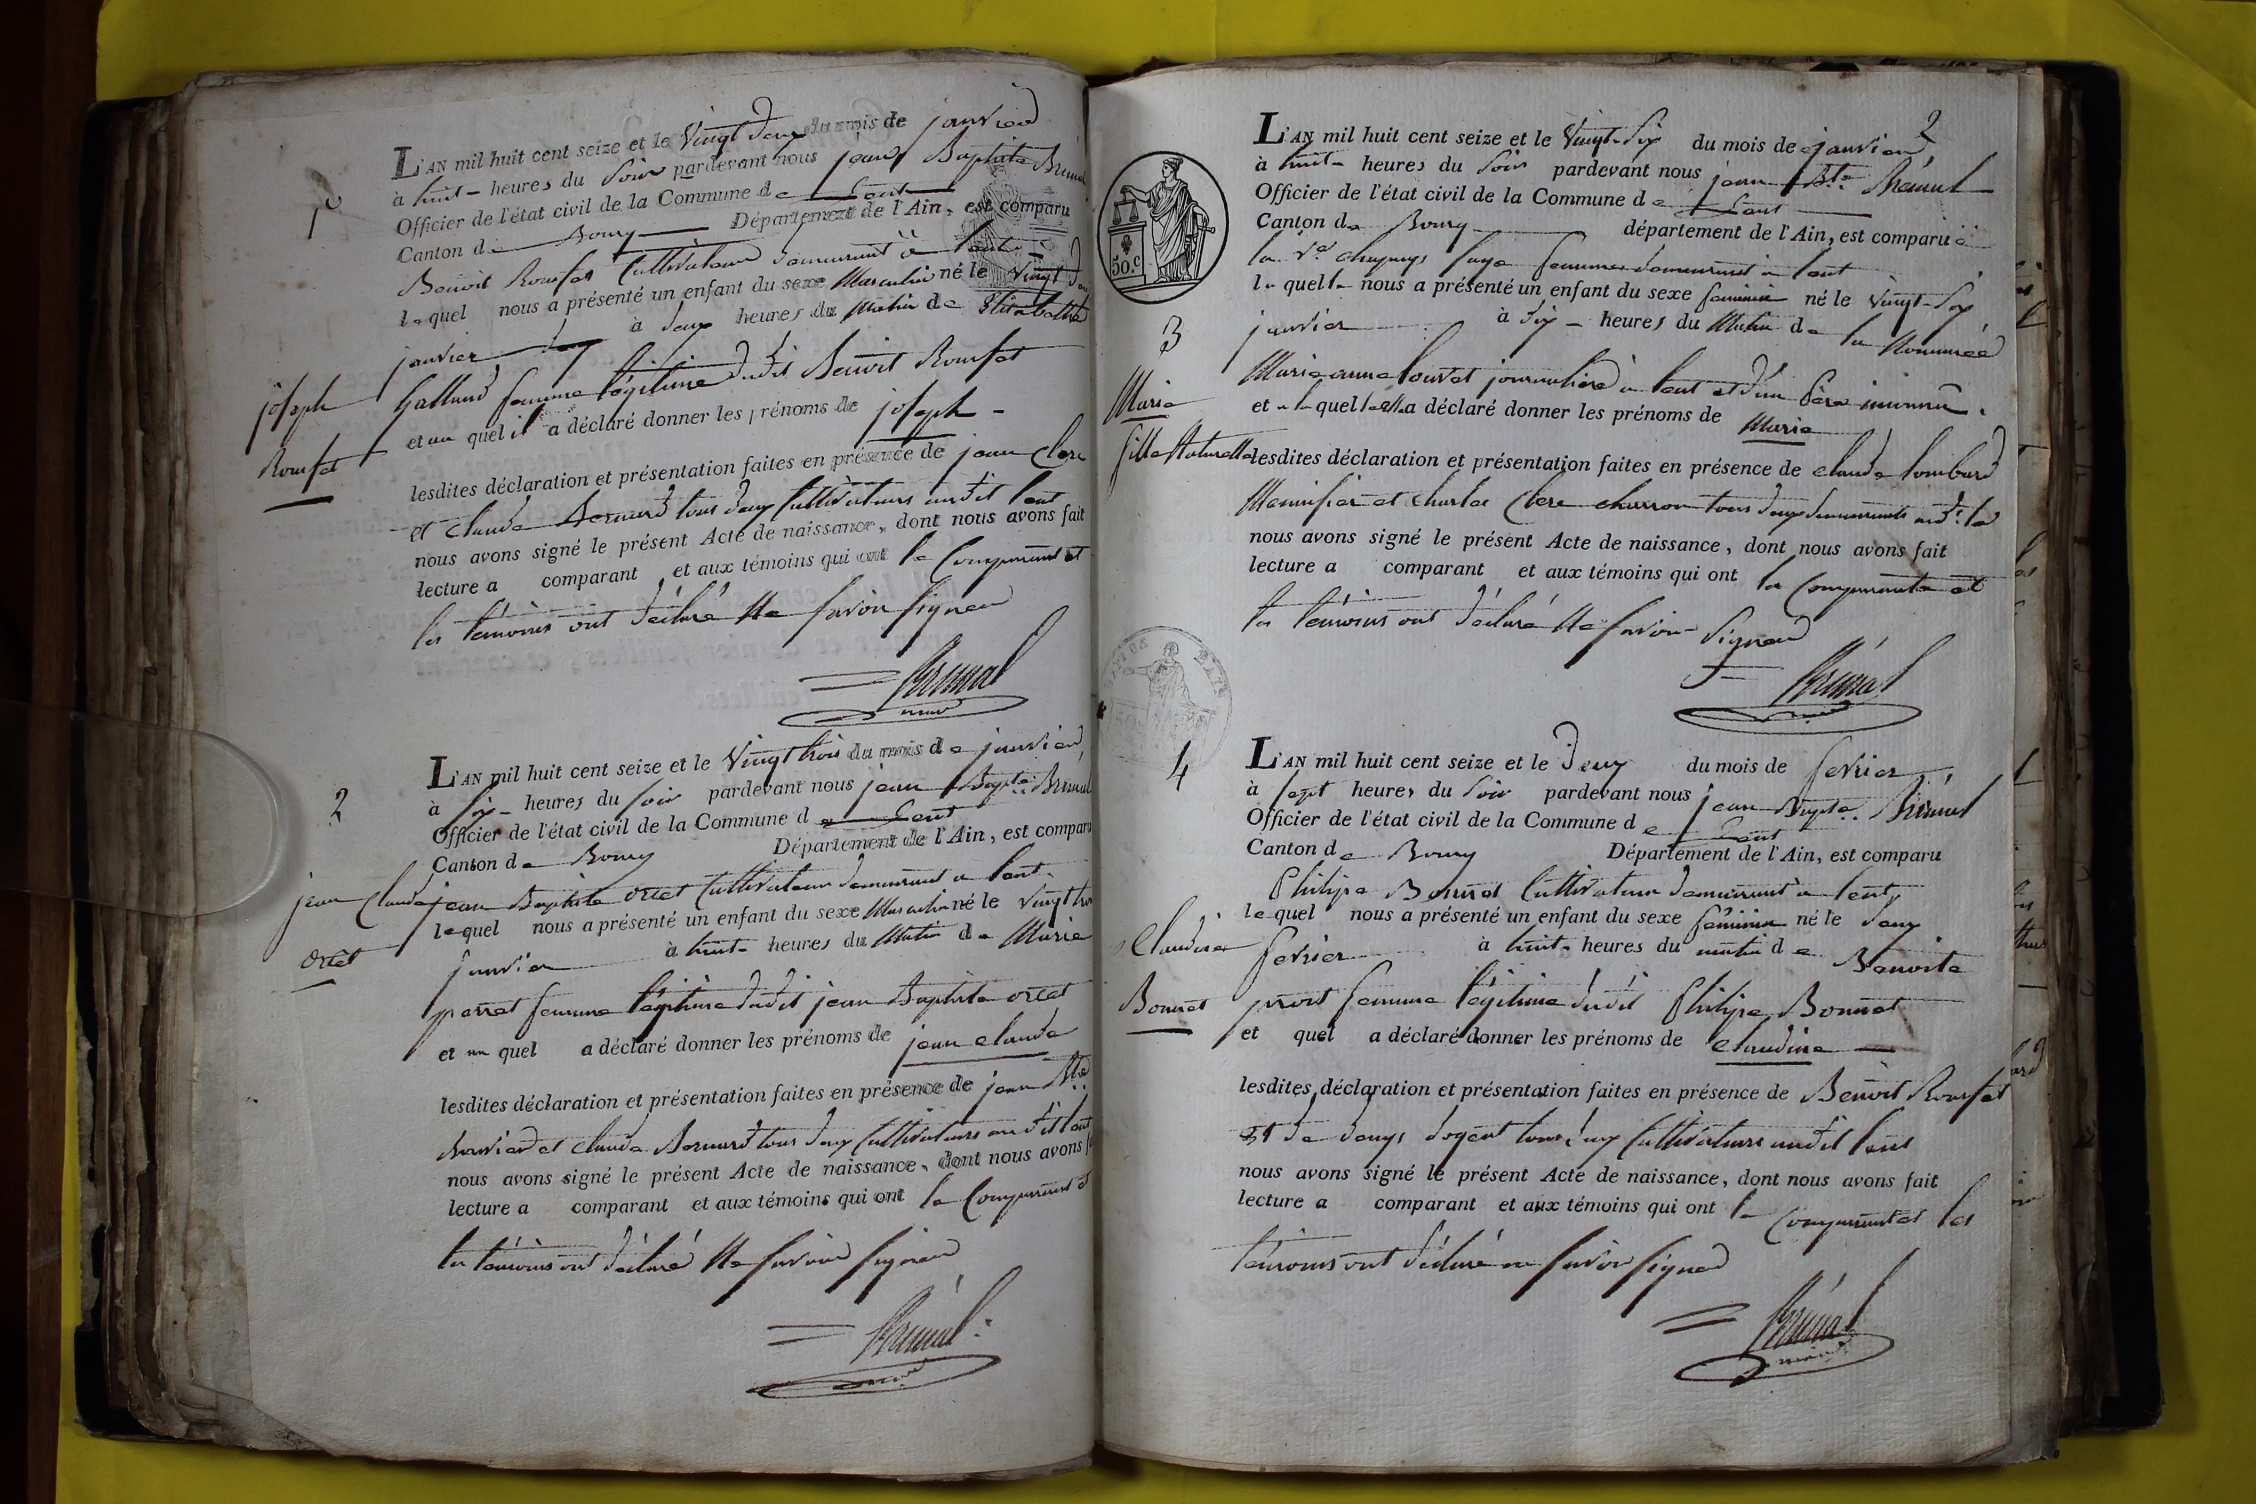 1
joseph
Rousset
L'AN mil huit cent seize et le Vingt deux du mois de janvier
à huit heures du Soir pardevant nous jean Baptiste
Officier de l'état civil de la Commune de Lent
Canton de Bourg Département de l'Ain, est comparu
Benoit Cultivateur demeurant à Lent
lequel nous a présenté un enfant du sexe Masculin né le Vingt deux
janvier à deux heures du Matin de Elizabethe
Galland femme légitime dudit Benoit
et au quel il a déclaré donner les prénoms de joseph
lesdites déclaration et présentation faites en présence de jean Clerc
et claude Bernard tous deux Cultivateurs audit Lent
nous avons signé le présent Acte de naissance, dont nous avons fait
lecture a comparant et aux témoins qui ont le Comparant et
les témoins ont déclaré Ne savoir signer
2
jean Claude
L'AN mil huit cent seize et le Vingt trois du mois de janvier
à six heures du soir pardevant nous jean Bapte
Officier de l'état civil de la Commune de Lent
Canton de Bourg Département de l'Ain, est comparu
jean Baptiste Cultivateur demeurant a Lent
lequel nous a présenté un enfant du sexe Masculin né le Vingt trois
janvier à huit heures du Matin de Marie
perret femme légitime dudit jean Baptiste
et au quel a déclaré donner les prénoms de jean claude
lesdites déclaration et présentation faites en présence de jean Bte
et claude Bernard tous deux Cultivateurs audit Lent
nous avons signé le présent Acte de naissance, dont nous avons
lecture a comparant et aux témoins qui ont le Comparant et
les témoins ont déclaré Ne savoir signer
2
50.c
3
Marie
fille Naturelle
L'AN mil huit cent seize et le Vingt-six du mois de janvier
à huit heures du Soir pardevant nous jean Bte
Officier de l'état civil de la Commune de Lent
Canton de Bourg département de l'Ain, est comparu
la Ve sage femme demeurant à Lent
la quelle nous a présenté un enfant du sexe feminin né le Vingt-six
janvier à dix heures du Matin de la Nommée
Marie anne journalière à Lent et d'un père inconnu
et a la quelle elle a déclaré donner les prénoms de Marie
lesdites déclaration et présentation faites en présence de claude Lombard
et charles Clerc charron tous deux demeurants
nous avons signé le présent Acte de naissance, dont nous avons fait
lecture a comparant et aux témoins qui ont la Comparante et
les témoins ont déclaré Ne savoir Signer
4
Claudine
Bonnet
L'AN mil huit cent seize et le deux du mois de fevrier
à sept heures du Soir pardevant nous jean Bapte
Officier de l'état civil de la Commune de Lent
Canton de Bourg Département de l'Ain, est comparu
Philipe Bonnet Cultivateur demeurant à Lent
lequel nous a présenté un enfant du sexe féminin né le deux
fevrier à huit heures du matin de Benoite
femme légitime dudit Philipe Bonnet
et quel a déclaré donner les prénoms de Claudine
lesdites déclaration et présentation faites en présence de Benoit
et de denys tous deux Cultivateurs audit Lent
nous avons signé le présent Acte de naissance, dont nous avons fait
lecture a comparant et aux témoins qui ont le Comparant et les
témoins ont déclaré ne savoir signer